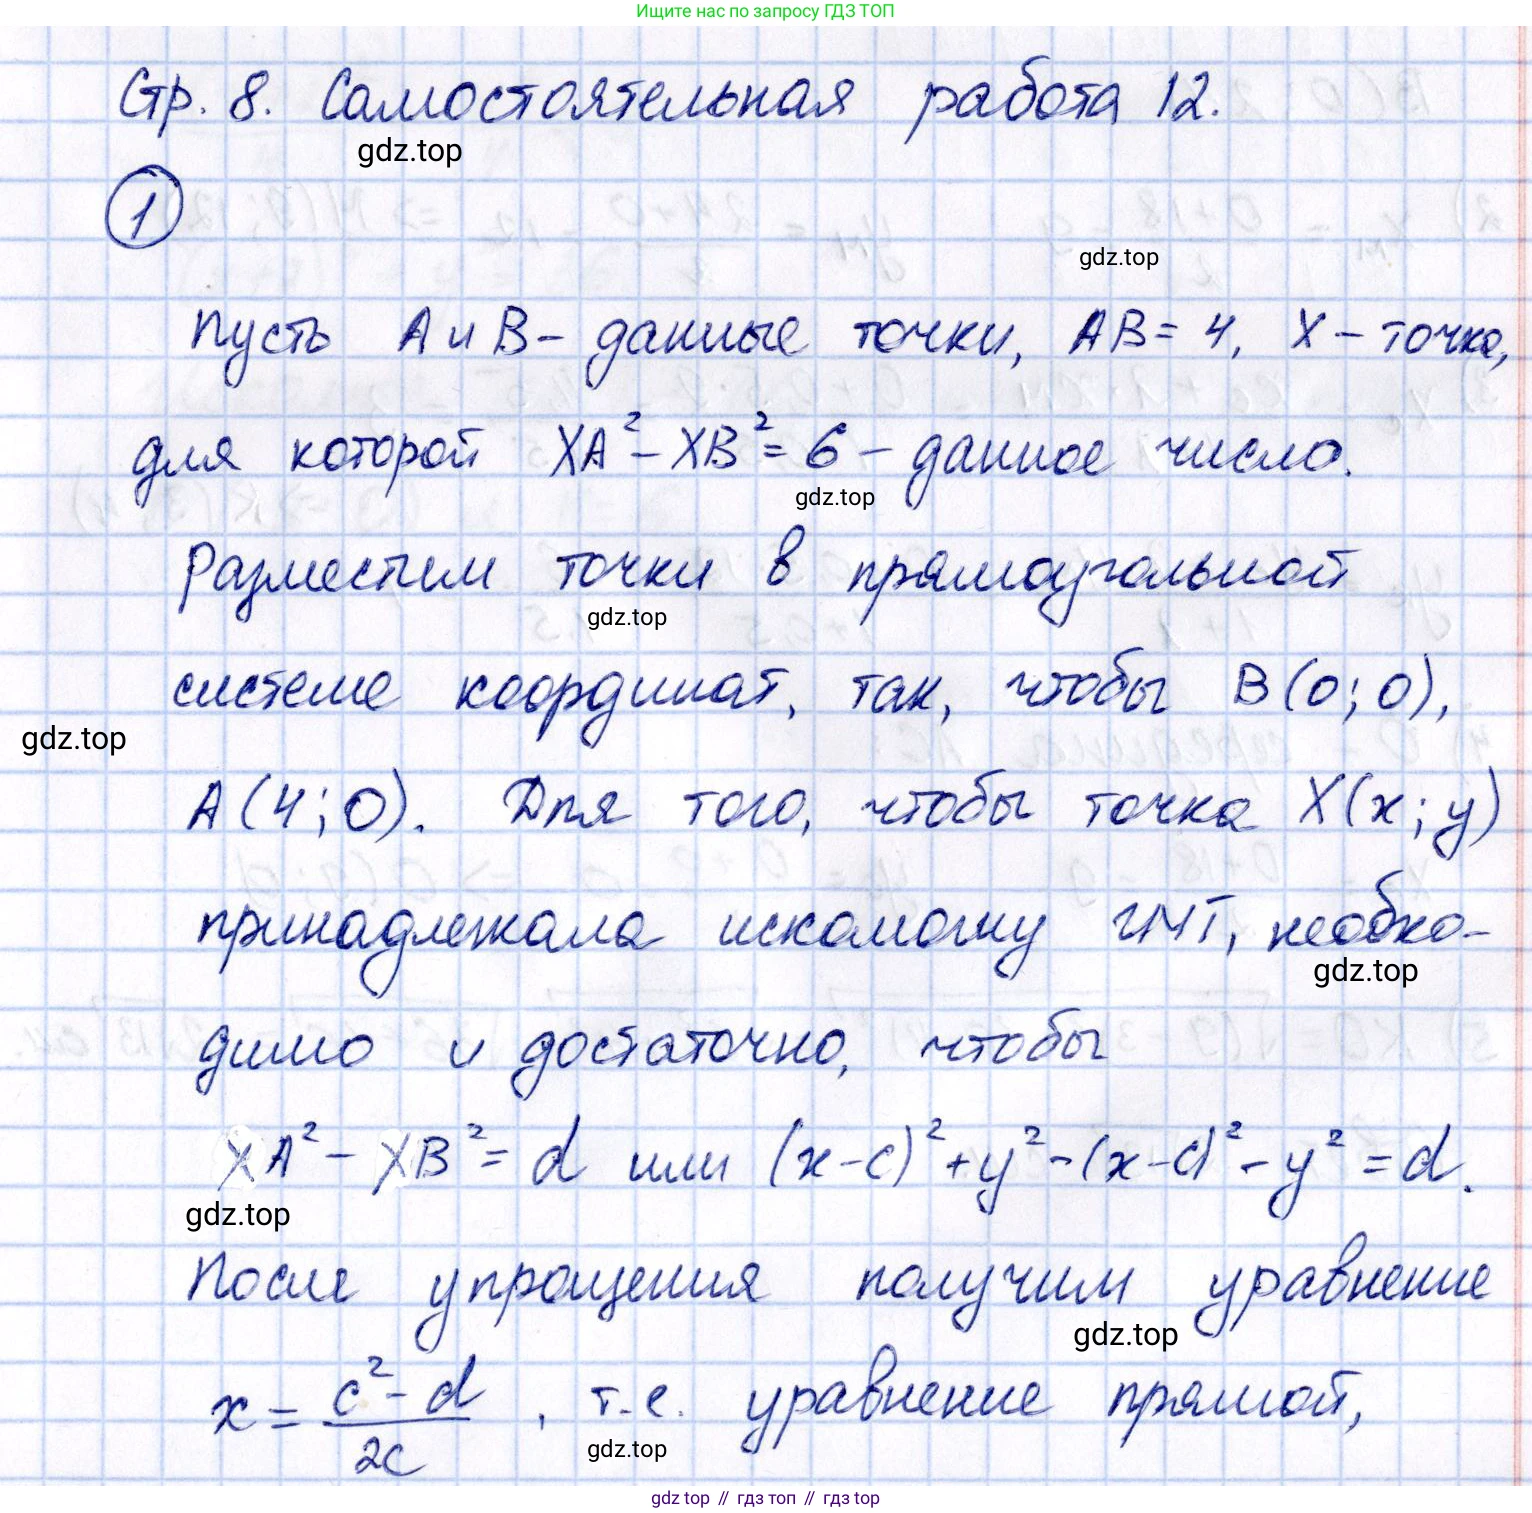 Ищите нас по запросу ГДЗ ТОП
Стр. 8. Самостоятельная работа 12.
gdz.top
1
gdz.top
Пусть А и В – данные точки, АВ = 4, Х – точка,
для которой XA² – XB² = 6 – данное число.
gdz.top
Разместим точки в прямоугольной
gdz.top
системе координат, так, чтобы В(0; 0),
gdz.top
А(4; 0). Для того, чтобы точка Х(x; y)
принадлежала искомому ГМТ, необхо-
gdz.top
димо и достаточно, чтобы
XA² – XB² = d или (x – c)² + y² – (x – c)² – y² = d.
gdz.top
После упрощения получим уравнение
gdz.top
x = (c² – d)/2c, т.е. уравнение прямой,
gdz.top
gdz.top // гдз топ // гдз.top